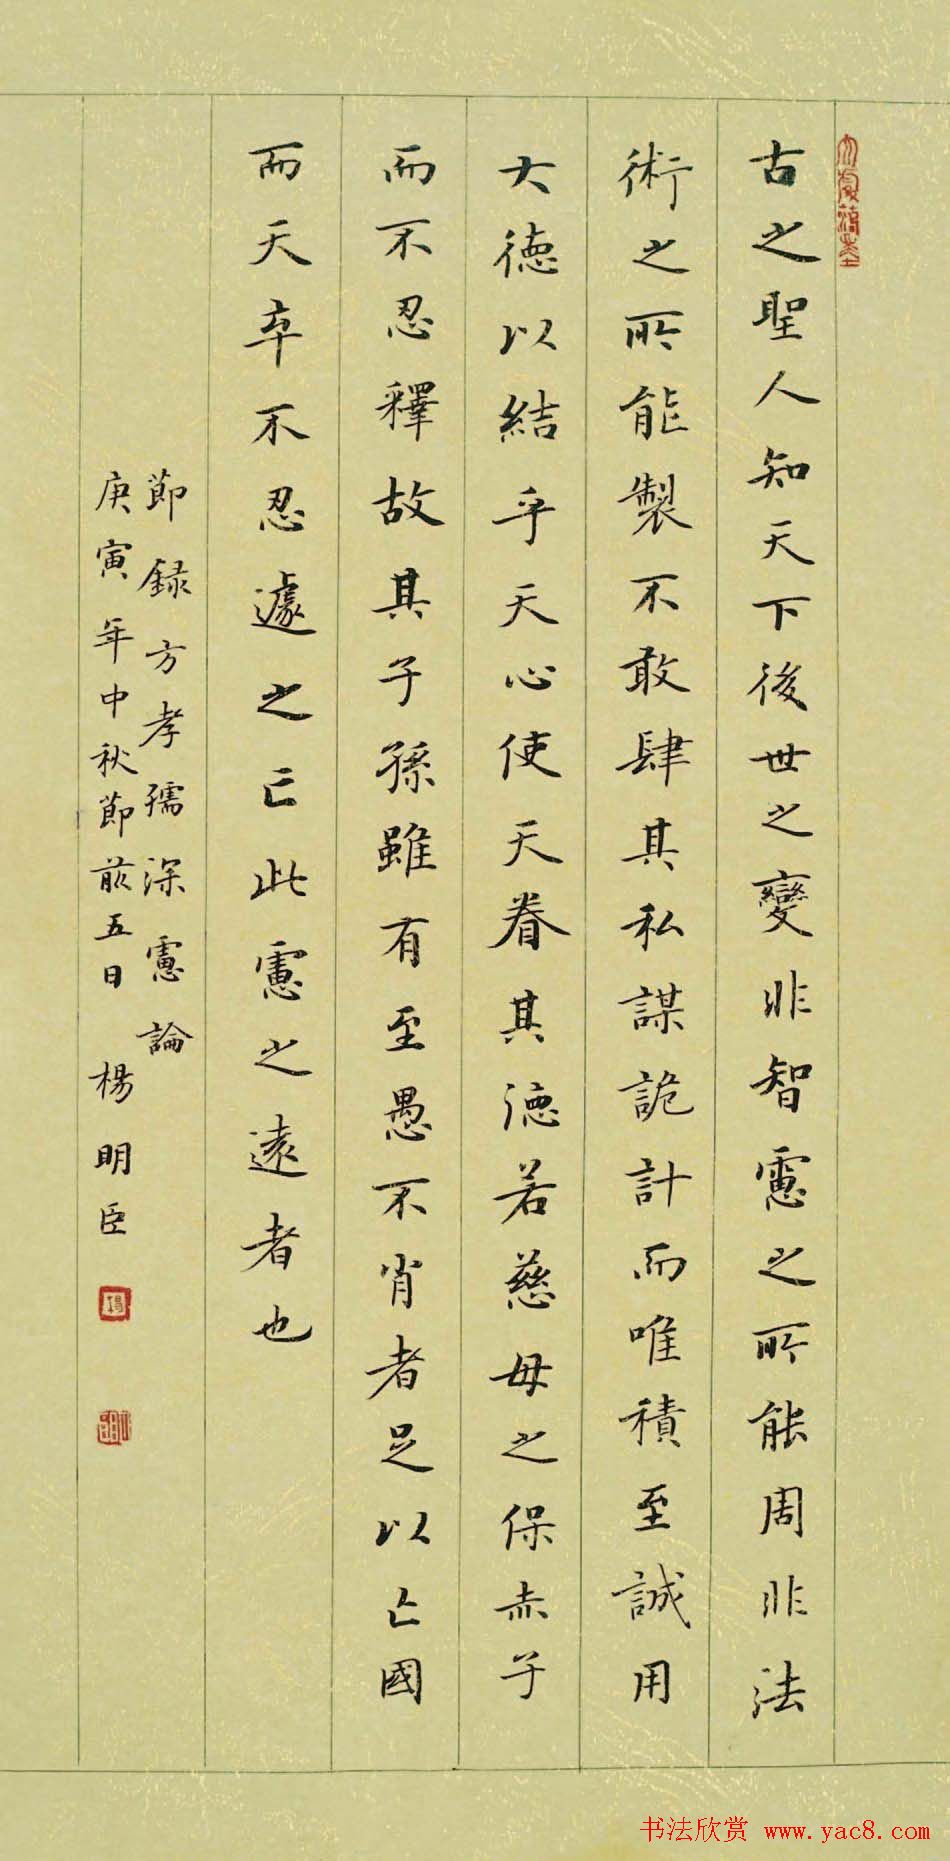 古之聖人知天下後世之變非智慮之所能周非法
術之所能製不敢肆其私謀詭計而唯積至誠用
大德以結乎天心使天眷其德若慈母之保赤子
而不忍釋故其子孫雖有至愚不肖者足以亡國
而天卒不忍遽之亡此慮之遠者也
節録方孝孺深慮論
庚寅年中秋節前五日 楊明臣
书法欣赏 www.yac8.com